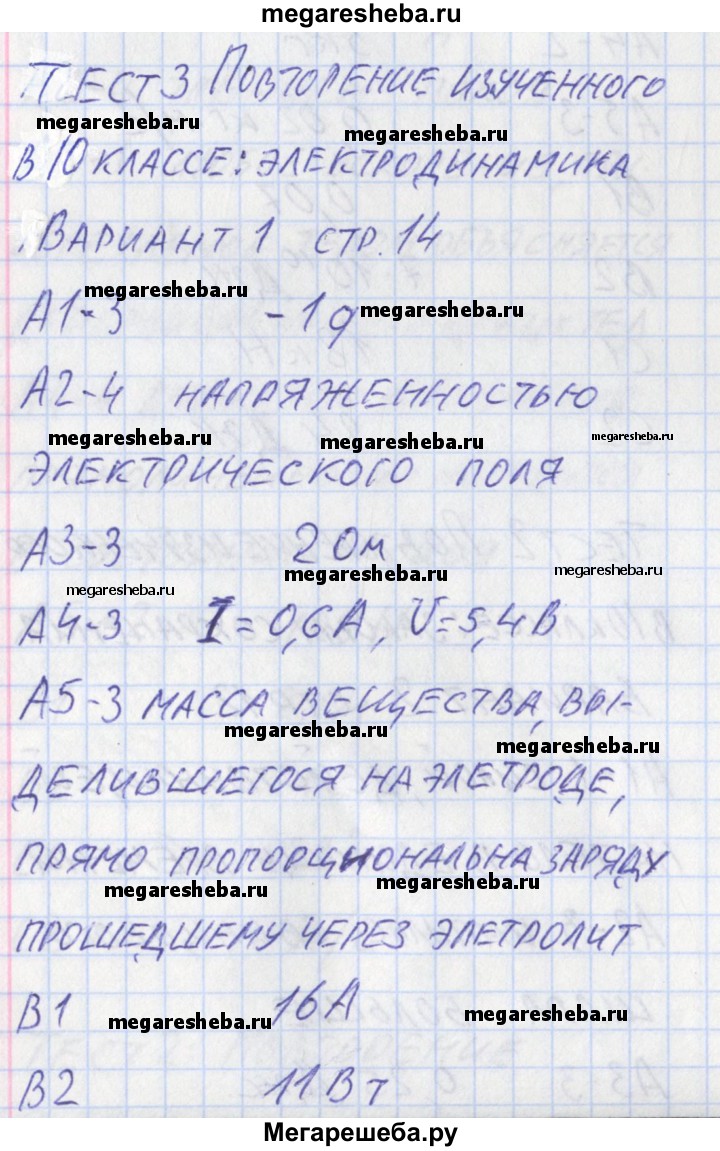 megaresheba.ru
ТЕСТ 3 ПОВТОРЕНИЕ ИЗУЧЕННОГО
megaresheba.ru
megaresheba.ru
В 10 КЛАССЕ: ЭЛЕКТРОДИНАМИКА
ВАРИАНТ 1 СТР. 14
megaresheba.ru
А1-3 -1q
megaresheba.ru
А2-4 НАПРЯЖЕННОСТЬЮ
megaresheba.ru
megaresheba.ru
megaresheba.ru
ЭЛЕКТРИЧЕСКОГО ПОЛЯ
А3-3 2 Ом
megaresheba.ru
megaresheba.ru
megaresheba.ru
А4-3 I = 0,6 А, U = 5,4 В
А5-3 МАССА ВЕЩЕСТВА, ВЫ-
megaresheba.ru
megaresheba.ru
ДЕЛИВШЕГОСЯ НА ЭЛЕТРОДЕ,
ПРЯМО ПРОПОРЦИОНАЛЬНА ЗАРЯДУ
megaresheba.ru
megaresheba.ru
ПРОШЕДШЕМУ ЧЕРЕЗ ЭЛЕТРОЛИТ
В1 16 А
megaresheba.ru
megaresheba.ru
В2 11 Вт
Мегарешеба.ру